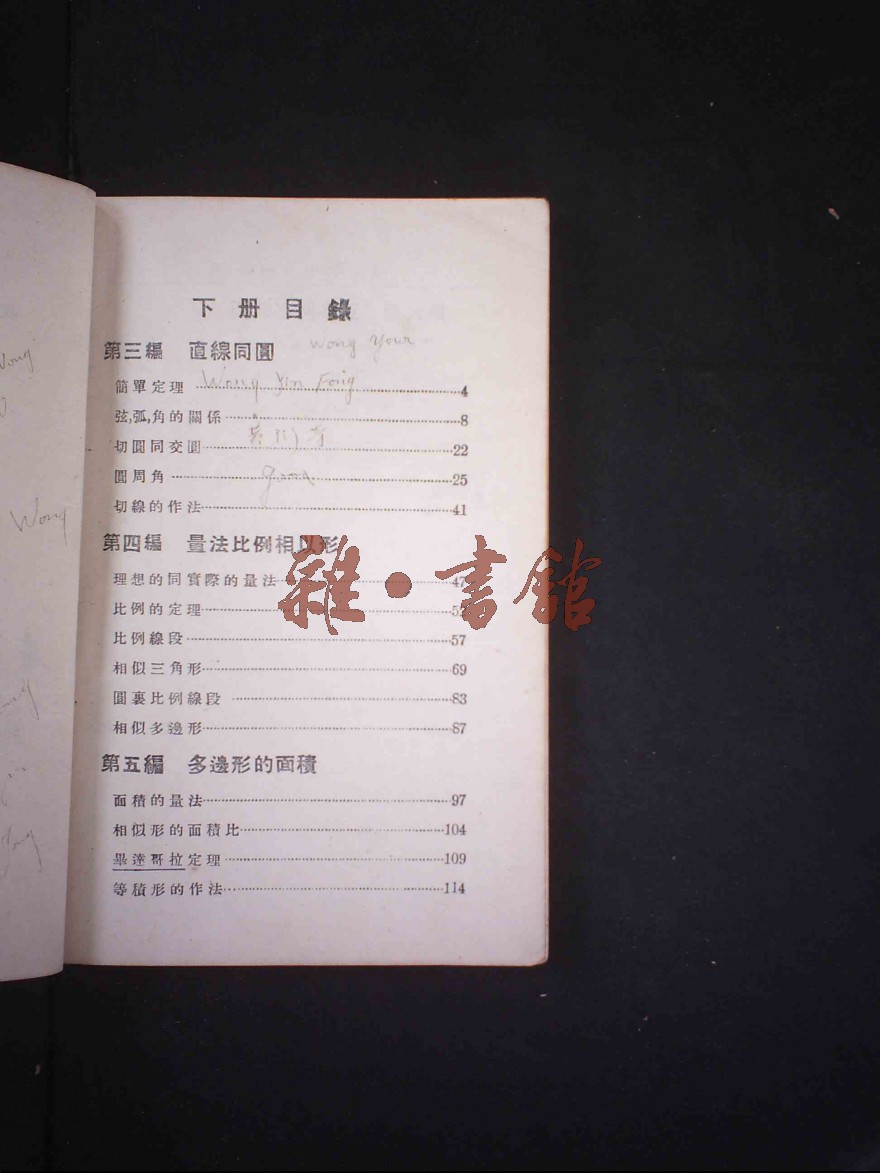 下册目錄
第三編 直線同圓
Wong Your
簡單定理 4
Wong Yin Fong
弦,弧,角的關係 8
切圓同交圓 22
圓周角 25
good
切線的作法 41
第四編 量法比例相似形
理想的同實際的量法 47
比例的定理 52
比例線段 57
相似三角形 69
圓裏比例線段 83
相似多邊形 87
第五編 多邊形的面積
面積的量法 97
相似形的面積比 104
畢達哥拉定理 109
等積形的作法 114
Wong
Wong
雜·書館